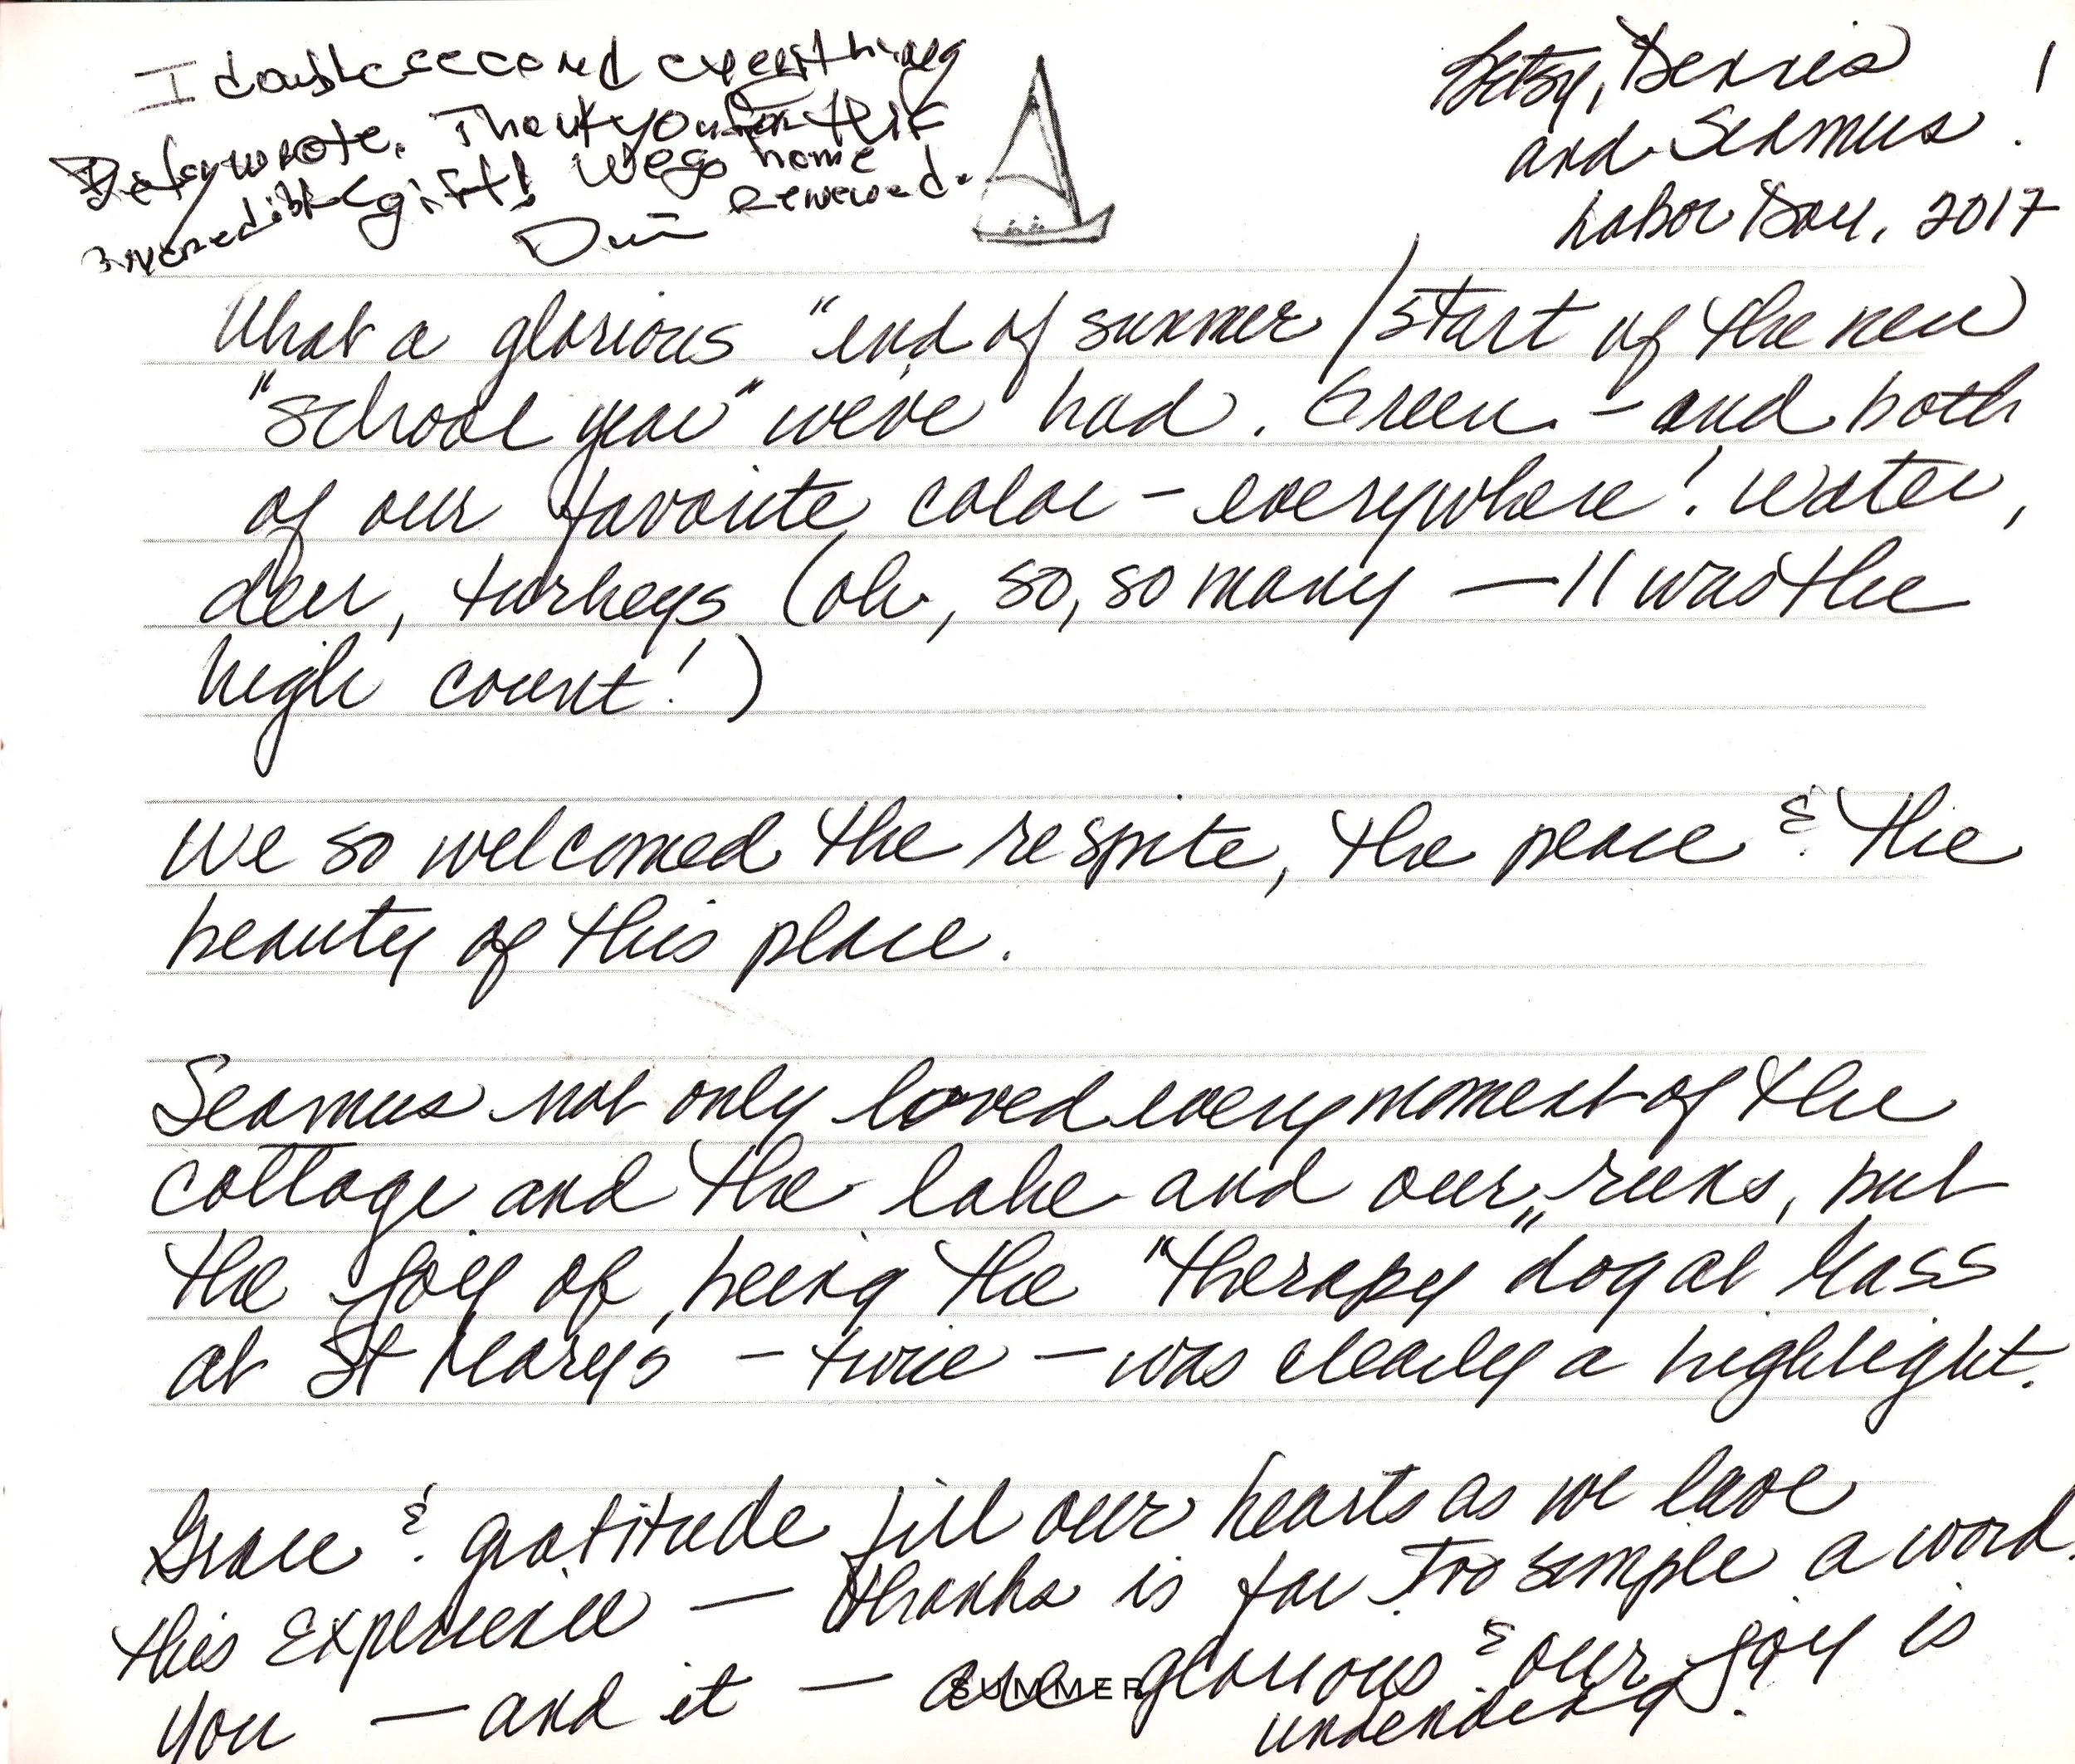 I double second everything
Betsy wrote. Thank you for this
incredible gift! We go home
renewed.
Betsy, Dennis
and Seamus!
Labor Day, 2017
What a glorious "end of summer / start of the new
"school year" we've had. Green - and both
of our favorite color - everywhere! Water,
deer, turkeys (oh, so, so many — 11 was the
high count!)
We so welcomed the respite, the peace & the
beauty of this place.
Seamus not only loved every moment of the
cottage and the lake and our runs, but
the joy of being the "therapy" dog at Mass
at St Mary's - twice - was clearly a highlight.
Grace & gratitude fill our hearts as we leave
this experience — thanks is far too simple a word.
You — and it — are glorious & our joy is
unending.
SUMMER